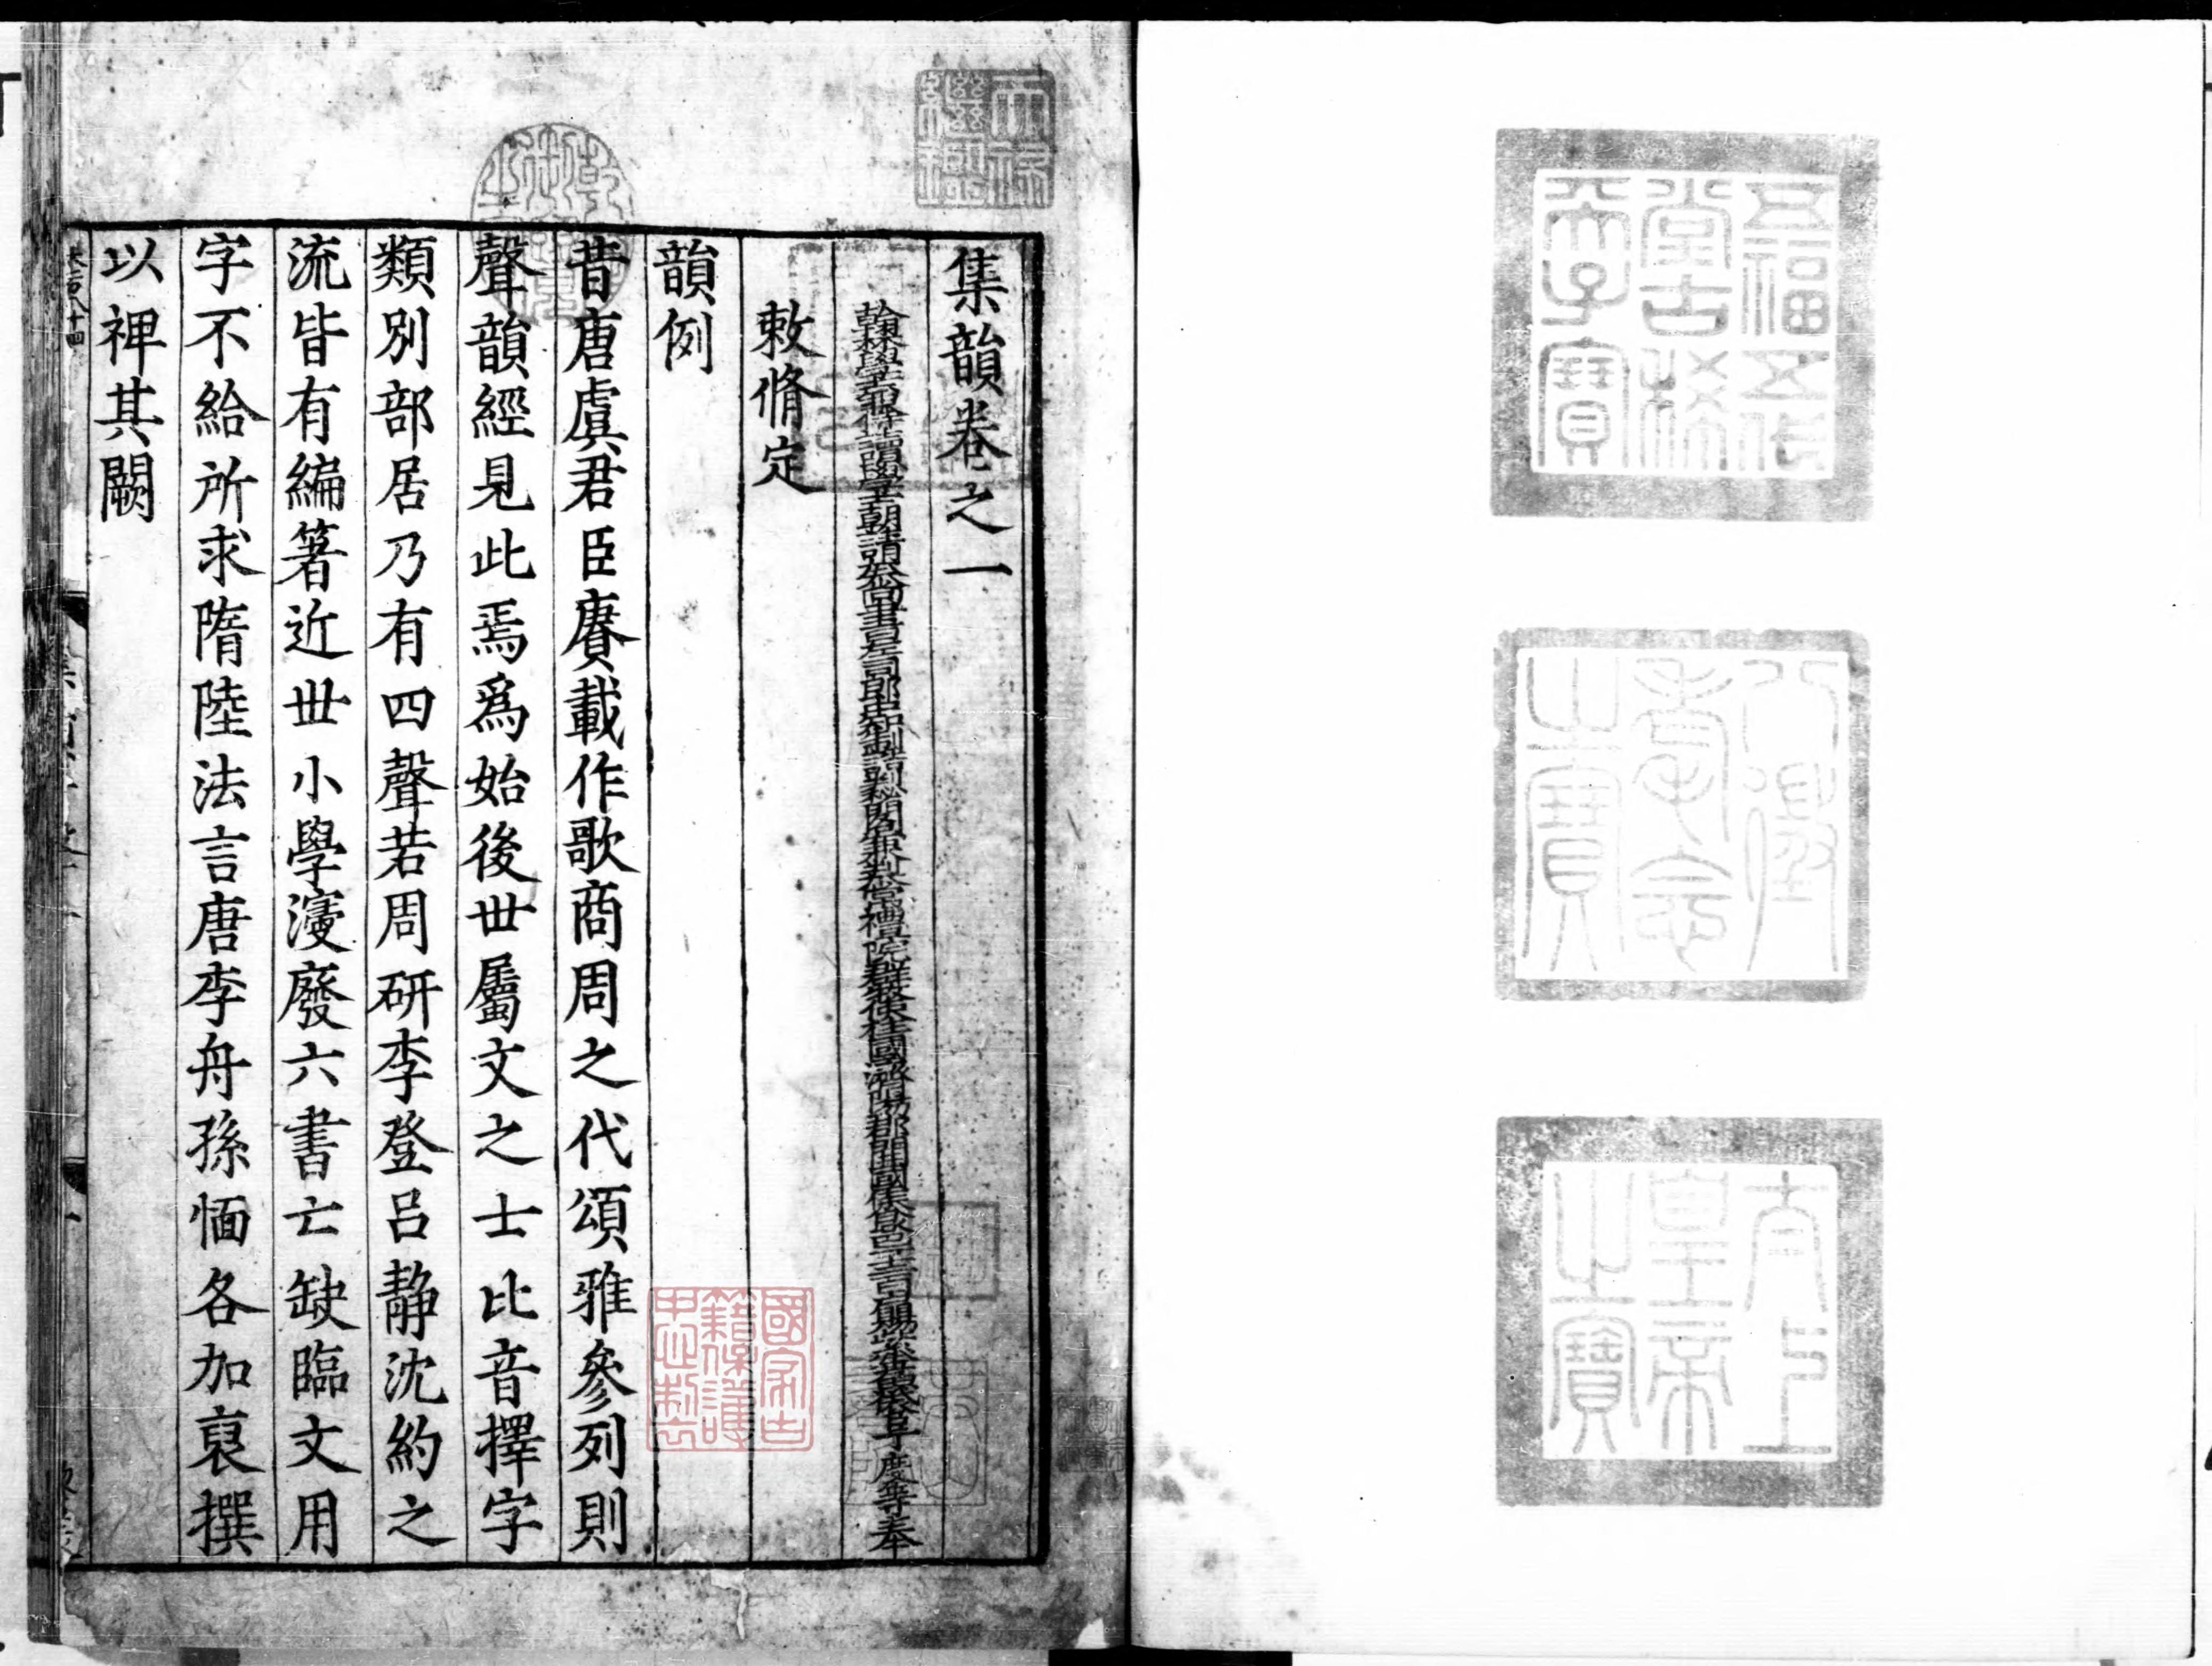 五福五代
堂古稀
天子寶
八徵
耄念
之寶
太上
皇帝
之寶
天祿
繼鑑
集韻卷之一
翰林學士兼侍讀學士朝請大夫尚書左司郎中知制誥判秘閣兼判太常禮院群牧使柱國濟陽郡開國侯食邑一千二百戶賜紫金魚袋臣丁度等奉
敕脩定
韻例
昔唐虞君臣賡載作歌商周之代頌雅參列則
聲韻經見此焉爲始後世屬文之士比音擇字
類別部居乃有四聲若周研李登呂靜沈約之
流皆有編著近世小學寖廢六書亡缺臨文用
字不給所求隋陸法言唐李舟孫愐各加裒撰
以裨其闕
國家古
籍保護
中心制